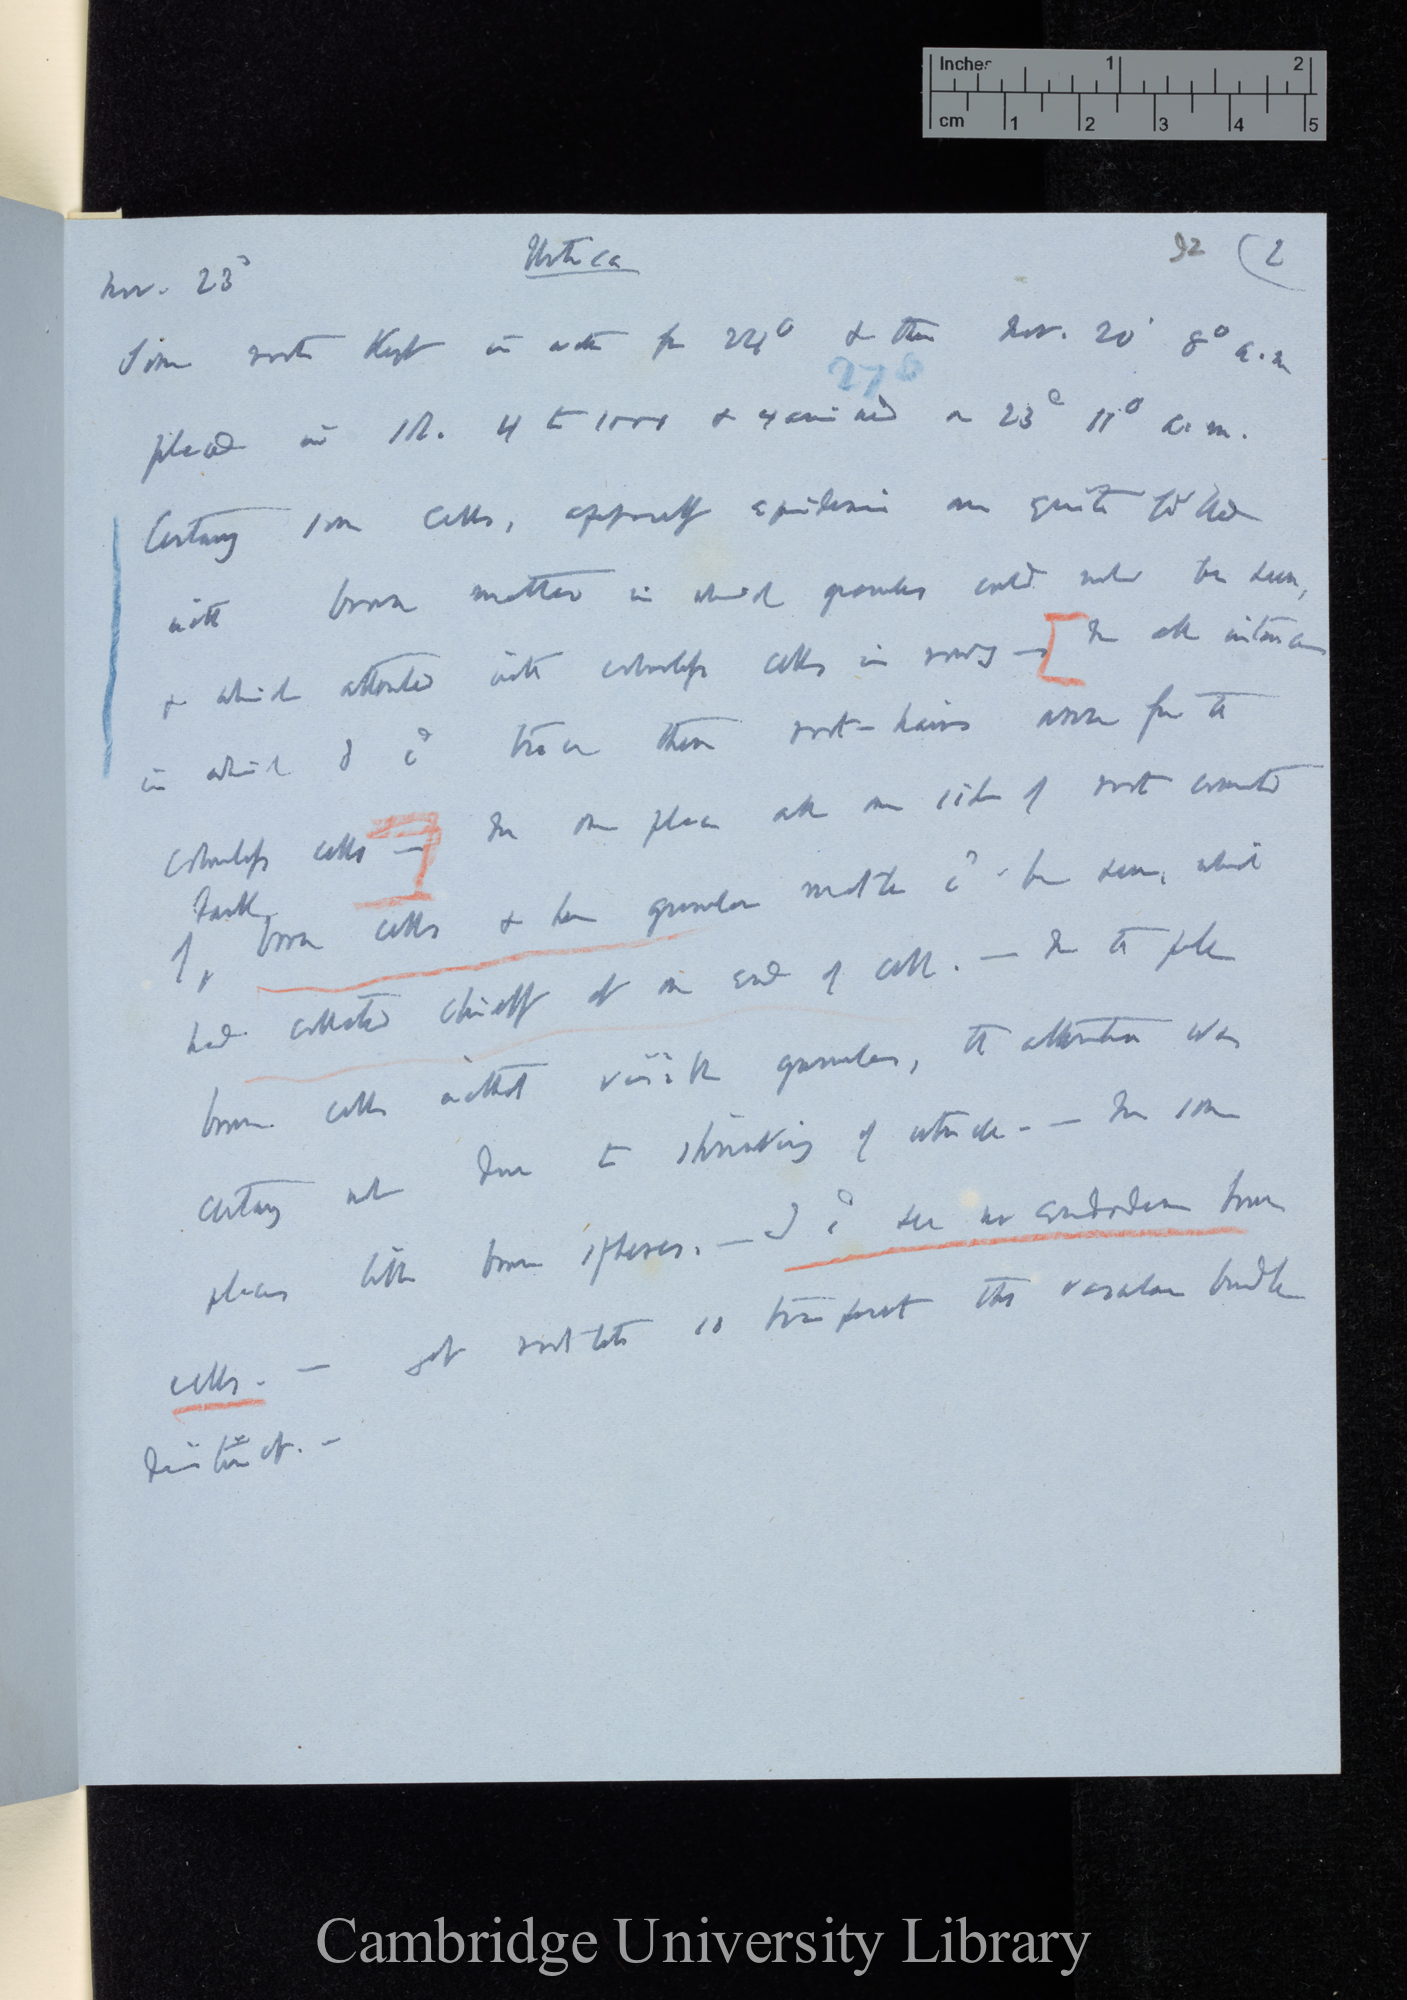 Inches 1 2
cm 1 2 3 4 5
32 (2
Nov. 23° Urtica
Some roots kept in water for 24° & then Nov. 20' 8° a.m
27°
placed in sol. 4 to 1000 & examined on 23° 11° a.m.
Certainly some cells, apparently epidermic are quite filled
with brown matter in which granules could not be seen,
& which alternated with colourless cells in rows — [In all instances
in which I c^d trace them root-hairs arose from the
colourless cells —] In one place all one side of root consisted
of dark brown cells & here granular matter c^d be seen, which
had collected chiefly at one end of cell. — In the pale
brown cells without visible granules, the alternation was
certainly not due to shrinking of utricle. — In some
places little brown spheres. — I c^d see no endoderm brown
cells. — yet rootlets so transparent this vascular bundle
distinct. —
Cambridge University Library